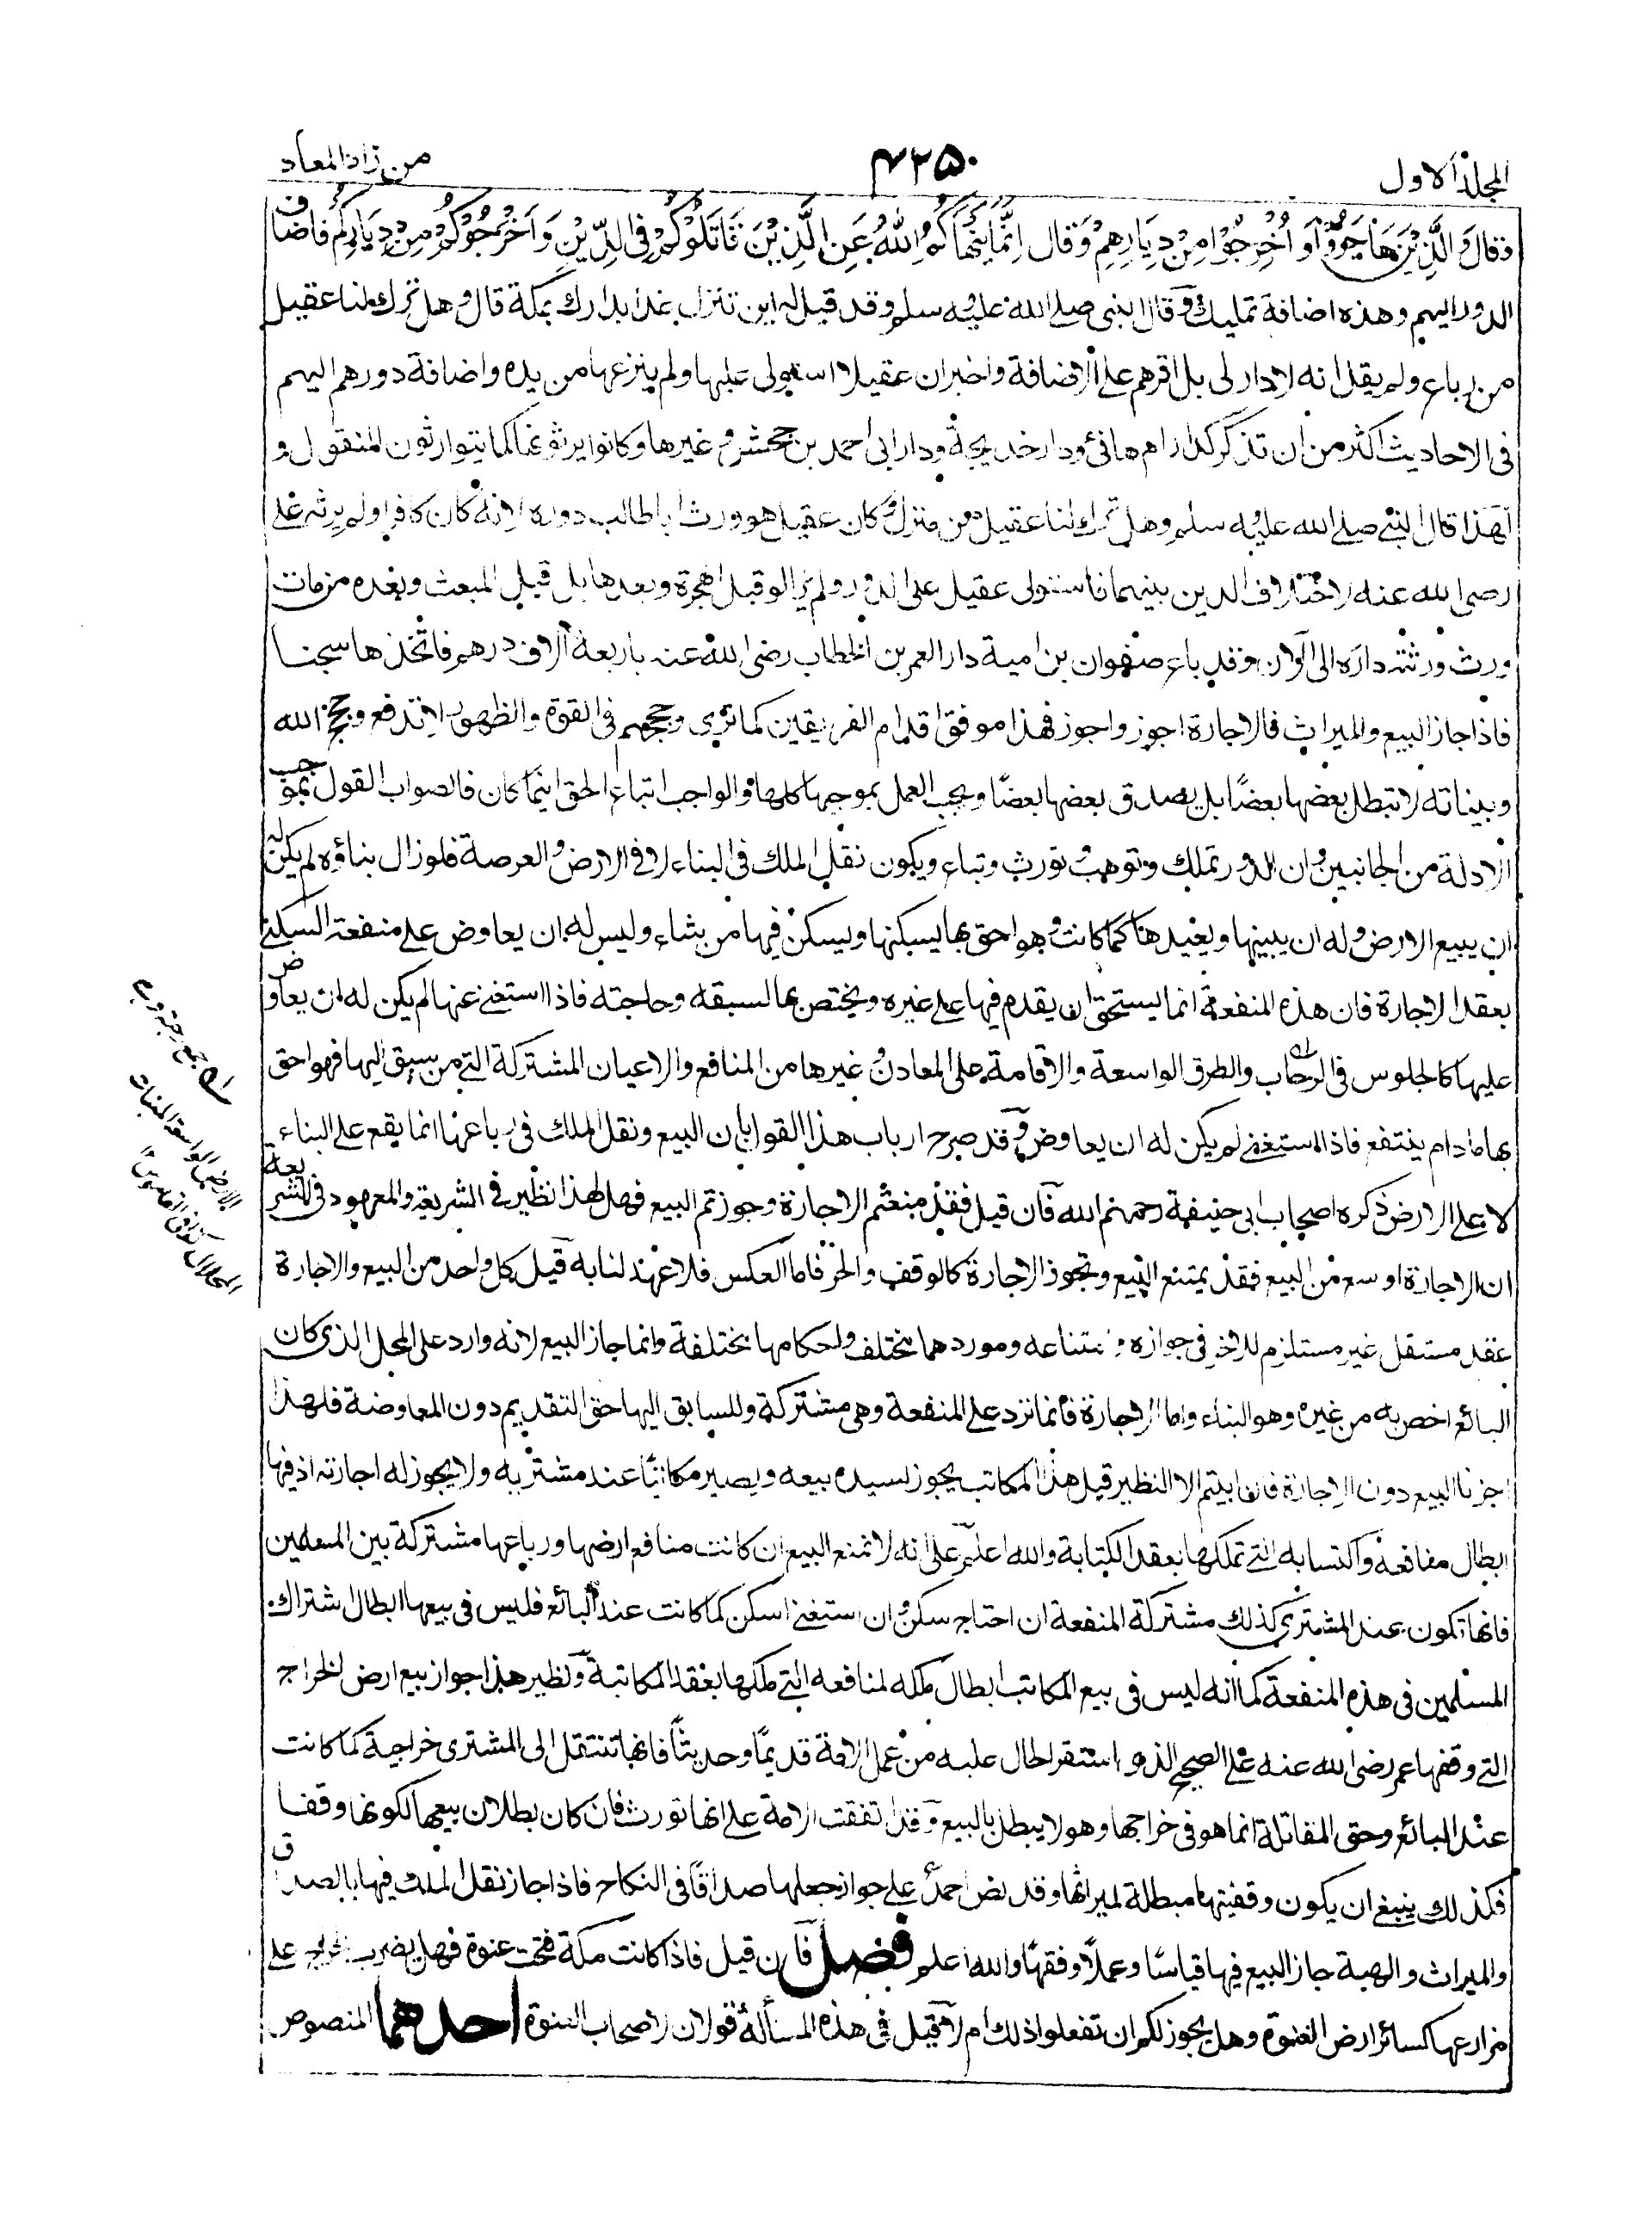 المجلد الاول
۴۲۵۰
من زاد المعاد
وَقال وَالَّذِيْنَ هَاجَرُوْا وَ اُخْرِجُوْا مِنْ دِيَارِهِمْ وَقال اِنَّمَا يَنْهَاكُمُ اللّٰهُ عَنِ الَّذِيْنَ قَاتَلُوْكُمْ فِي الدِّيْنِ وَاَخْرَجُوْكُمْ مِنْ دِيَارِكُمْ فاضاف
الدور اليهم وهذه اضافة تمليك وقال النبى صلى الله عليه سلم وقد قيل له اين تنزل غدا بدارك بمكة قال وهل ترك لنا عقيل
من رباع ولم يقل انه لا دار لى بل اقرهم على الاضافة واخبر ان عقيلا استولى عليها ولم ينزعها من يده واضافة دورهم اليهم
فى الاحاديث اكثر من ان تذكر كدار ام هانئ ودار خديجة ودار ابى احمد بن جحش وغيرها وكانوا يرثونها كما يتوارثون المنقول و
لهذا قال النبى صلى الله عليه سلم وهل ترك لنا عقيل من منزل وكان عقيل هو ورث ابا طالب دوره لانه كان كافرا ولم يرثه على
رضى الله عنه لاختلاف الدين بينهما فاستولى عقيل على الدور ولم يزالو قبل الهجرة وبعدها بل قبل المبعث وبعده من مات
ورث ورثته داره الى الآن وقد باع صفوان بن امية دارا لعمر بن الخطاب رضى الله عنه باربعة آلاف درهم فاتخذها سجنا
فاذا جاز البيع والميراث فالاجارة اجوز واجوز فهذا موقف اقدام الفريقين كما ترى وحججهم فى القوة والظهور لا تدفع وحجج الله
وبيناته لا تبطل بعضها بعضًا بل يصدق بعضها بعضًا ويجب العمل بموجبها كلها والواجب اتباع الحق اينما كان فالصواب القول بموجب
الادلة من الجانبين وان الدور تملك وتوهب وتورث وتباع ويكون نقل الملك فى البناء لا فى الارض والعرصة فلو زال بناؤه لم يكن له
ان يبيع الارض وله ان يبنيها ويعيدها كما كانت وهو احق بها يسكنها ويسكن فيها من يشاء وليس له ان يعاوض على منفعة السكنى
بعقد الاجارة فان هذه المنفعة انما يستحق ان يقدم فيها على غيره ويختص بها لسبقه وحاجته فاذا استغنى عنها لم يكن له ان يعاوض
عليها كالجلوس فى الرحاب والطرق الواسعة والاقامة على المعادن وغيرها من المنافع والاعيان المشتركة التى من سبق اليها فهو احق
بها ما دام ينتفع فاذا استغنى لم يكن له ان يعاوض وقد صرح ارباب هذا القول بان البيع ونقل الملك فى رباعها انما يقع على البناء
لا على الارض ذكره اصحاب ابى حنيفة رحمهم الله فان قيل فقد منعتم الاجارة وجوزتم البيع فهل لهذا نظير فى الشريعة والمعهود فى الشريعة
ان الاجارة اوسع من البيع فقد يمتنع البيع وتجوز الاجارة كالوقف والحر فاما العكس فلا عهد لنا به قيل كل واحد من البيع والاجارة
عقد مستقل غير مستلزم للآخر فى جوازه وامتناعه وموردهما مختلف واحكامها مختلفة وانما جاز البيع لانه وارد على المحل الذى كان
البائع اخص به من غيره وهو البناء واما الاجارة فانما ترد على المنفعة وهى مشتركة وللسابق اليها حق التقديم دون المعاوضة فلهذا
اجزنا البيع دون الاجارة فان ابيتم الا النظير قيل هذا المكاتب يجوز لسيده بيعه ويصير مكاتبًا عند مشتريه ولا يجوز له اجارته اذ فيها
ابطال منافعه واكتسابه التى تملكها بعقد الكتابة والله اعلم على انه لا تمنع البيع ان كانت منافع ارضها ورباعها مشتركة بين المسلمين
فانها تكون عند المشترى كذلك مشتركة المنفعة ان احتاج سكن وان استغنى اسكن كما كانت عند البائع فليس فى بيعها ابطال اشتراك
المسلمين فى هذه المنفعة كما انه ليس فى بيع المكاتب ابطال ملكه لمنافعه التى ملكها بعقد المكاتبة ونظير هذا جواز بيع ارض الخراج
التى وقفها عمر رضى الله عنه على الصحيح الذى استقر الحال عليه من عمل الامة قديمًا وحديثًا فانها تنتقل الى المشترى خراجية كما كانت
عند البائع وحق المقاتلة انما هو فى خراجها وهو لا يبطل بالبيع وقد اتفقت الامة على انها تورث فان كان بطلان بيعها لكونها وقفا
فكذلك ينبغى ان يكون وقفيتها مبطلة لميراثها وقد نص احمد على جواز جعلها صداقًا فى النكاح فاذا جاز نقل الملك فيها بالصداق
والميراث والهبة جاز البيع فيها قياسًا وعملًا وفقهًا والله اعلم فصل فان قيل فاذا كانت مكة فتحت عنوة فهل يضرب الخراج على
مزارعها كسائر ارض العنوة وهل يجوز لكم ان تفعلوا ذلك ام لا قيل فى هذه المسألة قولان لاصحاب العنوة احدهما المنصوص